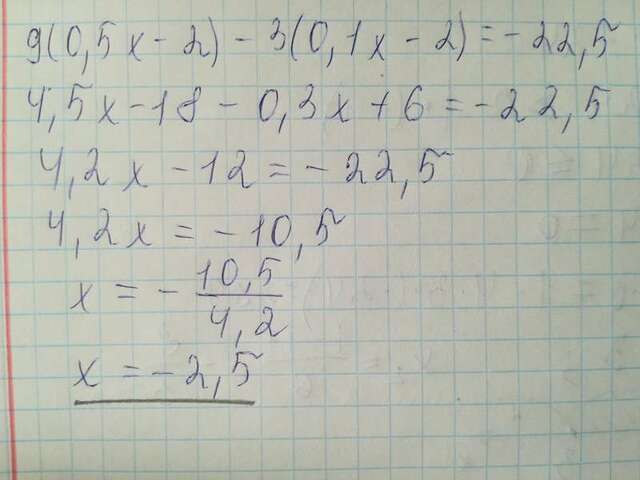 9(0,5x-2)-3(0,1x-2)=-22,5
4,5x-18-0,3x+6=-22,5
4,2x-12=-22,5
4,2x=-10,5
x=-10,5/4,2
x=-2,5